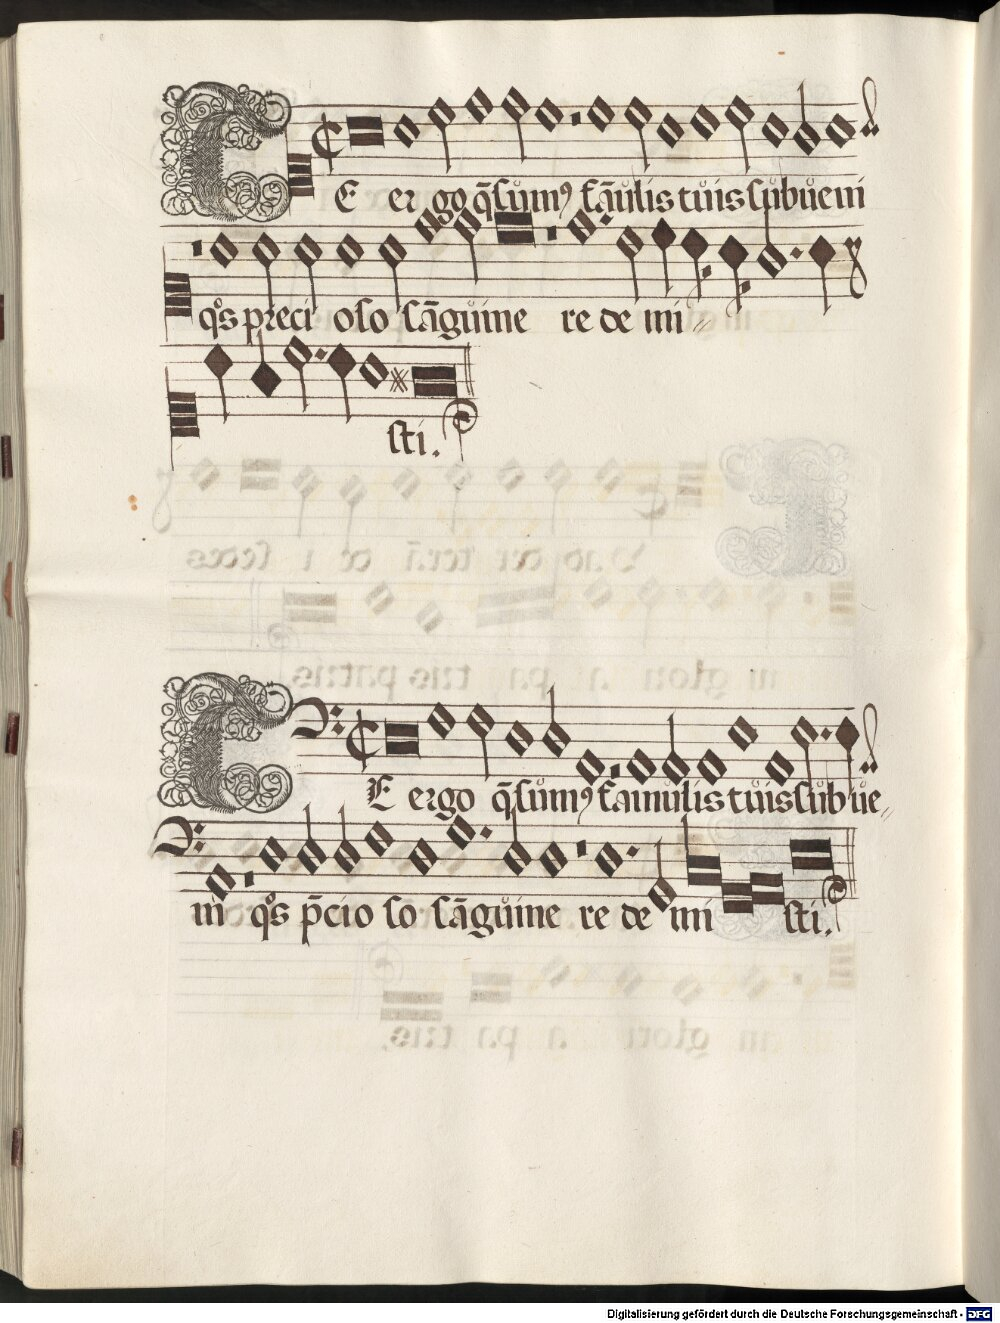 TE ergo q̄sůmꝰ fāůlis tůis sůbůeni
qͦs preci oso sāgůine re de mi〃
sti.
TE ergo q̄sůmꝰ famůlis tůis sůb ůe〃
ni qͦs p̄cio so sāgůine re de mi sti.
Digitalisierung gefördert durch die Deutsche Forschungsgemeinschaft - DFG